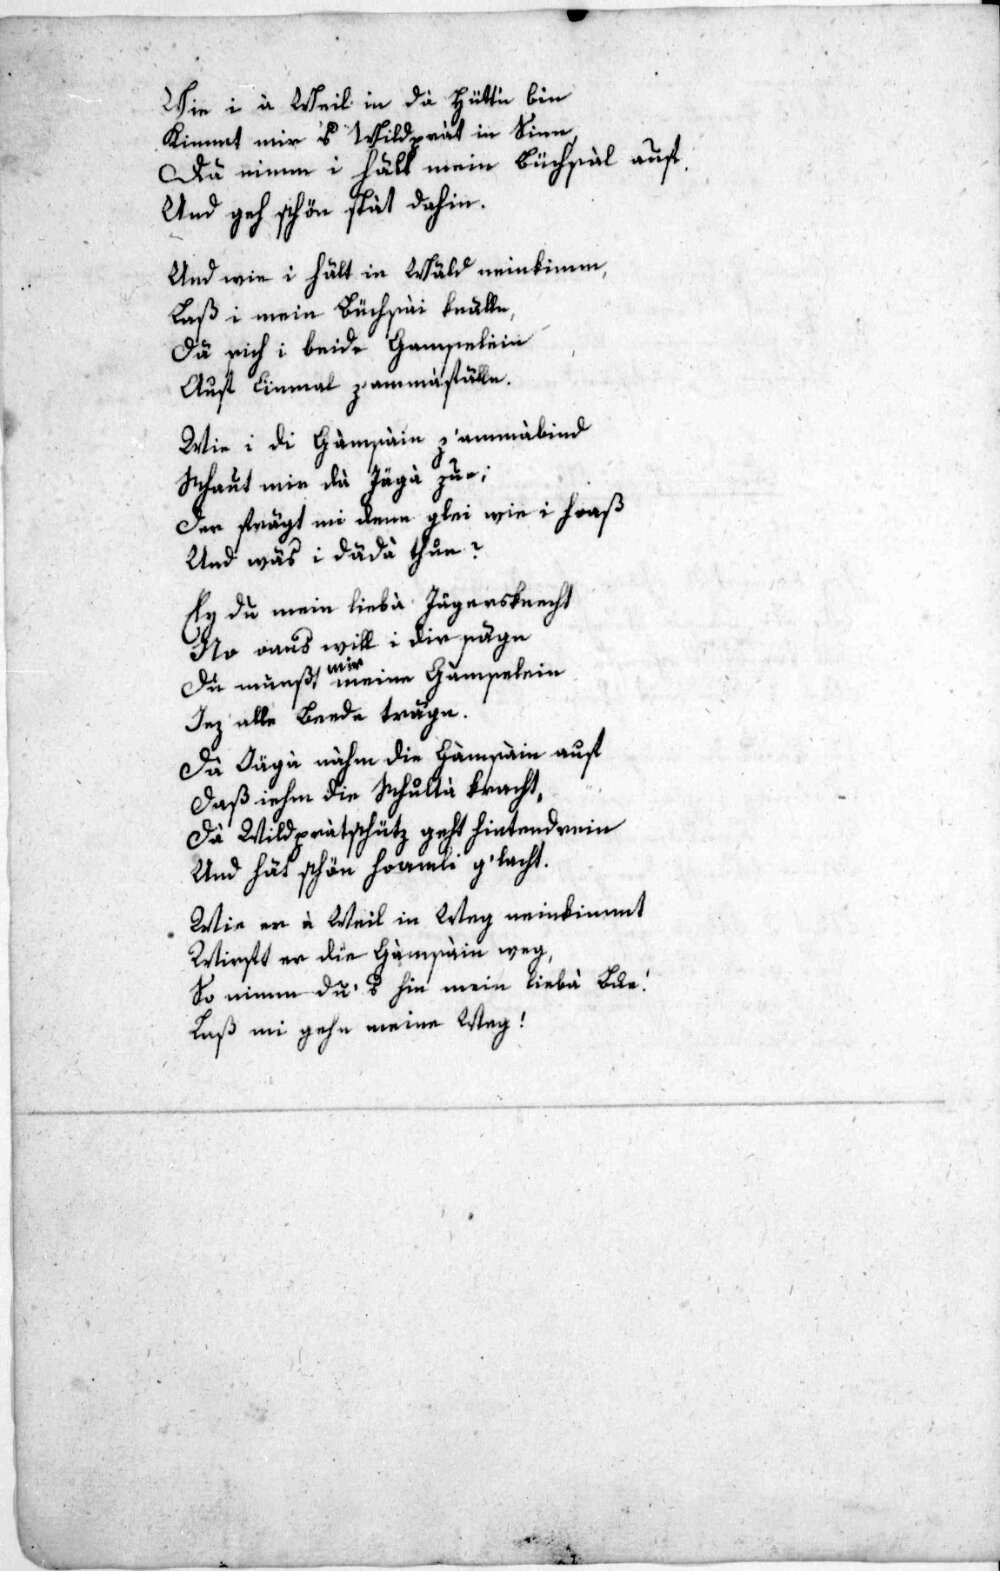 Wie i à Weil in dà Hütt'n bin
Kimmt mir 's Wildprät in Sinn,
Då nimm i hålt mein Büchsäl auf,
Und geh schön spåt dahin.
Und wie i hålt in Wåld neinkimm,
Laß i mein Büchsäi knålln,
Då sich i beide Gamselein
Auf Einmal z'ammåfålln.
Wie i di Gàmsàin z'ammàbind
Schaut mir dà Jågà zue;
Der frågt mi denn glei wie i hoaß
Und wås i dådà thue?
Ey du mein liebà Jägersknecht
No oans will i dir sågn
Du mueßt mir meine Gàmselein
Jez alle Beede trågn.
Dà Jågà nåhm die Gàmsàin auf
Daß iehm die Schultà kracht,
Dà Wildpràtschütz geht hintendrein
Und håt schön hoamli g'lacht.
Wie er à Weil in Weg neinkimmt
Wirft er die Gàmsàin weg,
So nimm du's hin mein liebà Bue!
Laß mi gehn meine Weg!